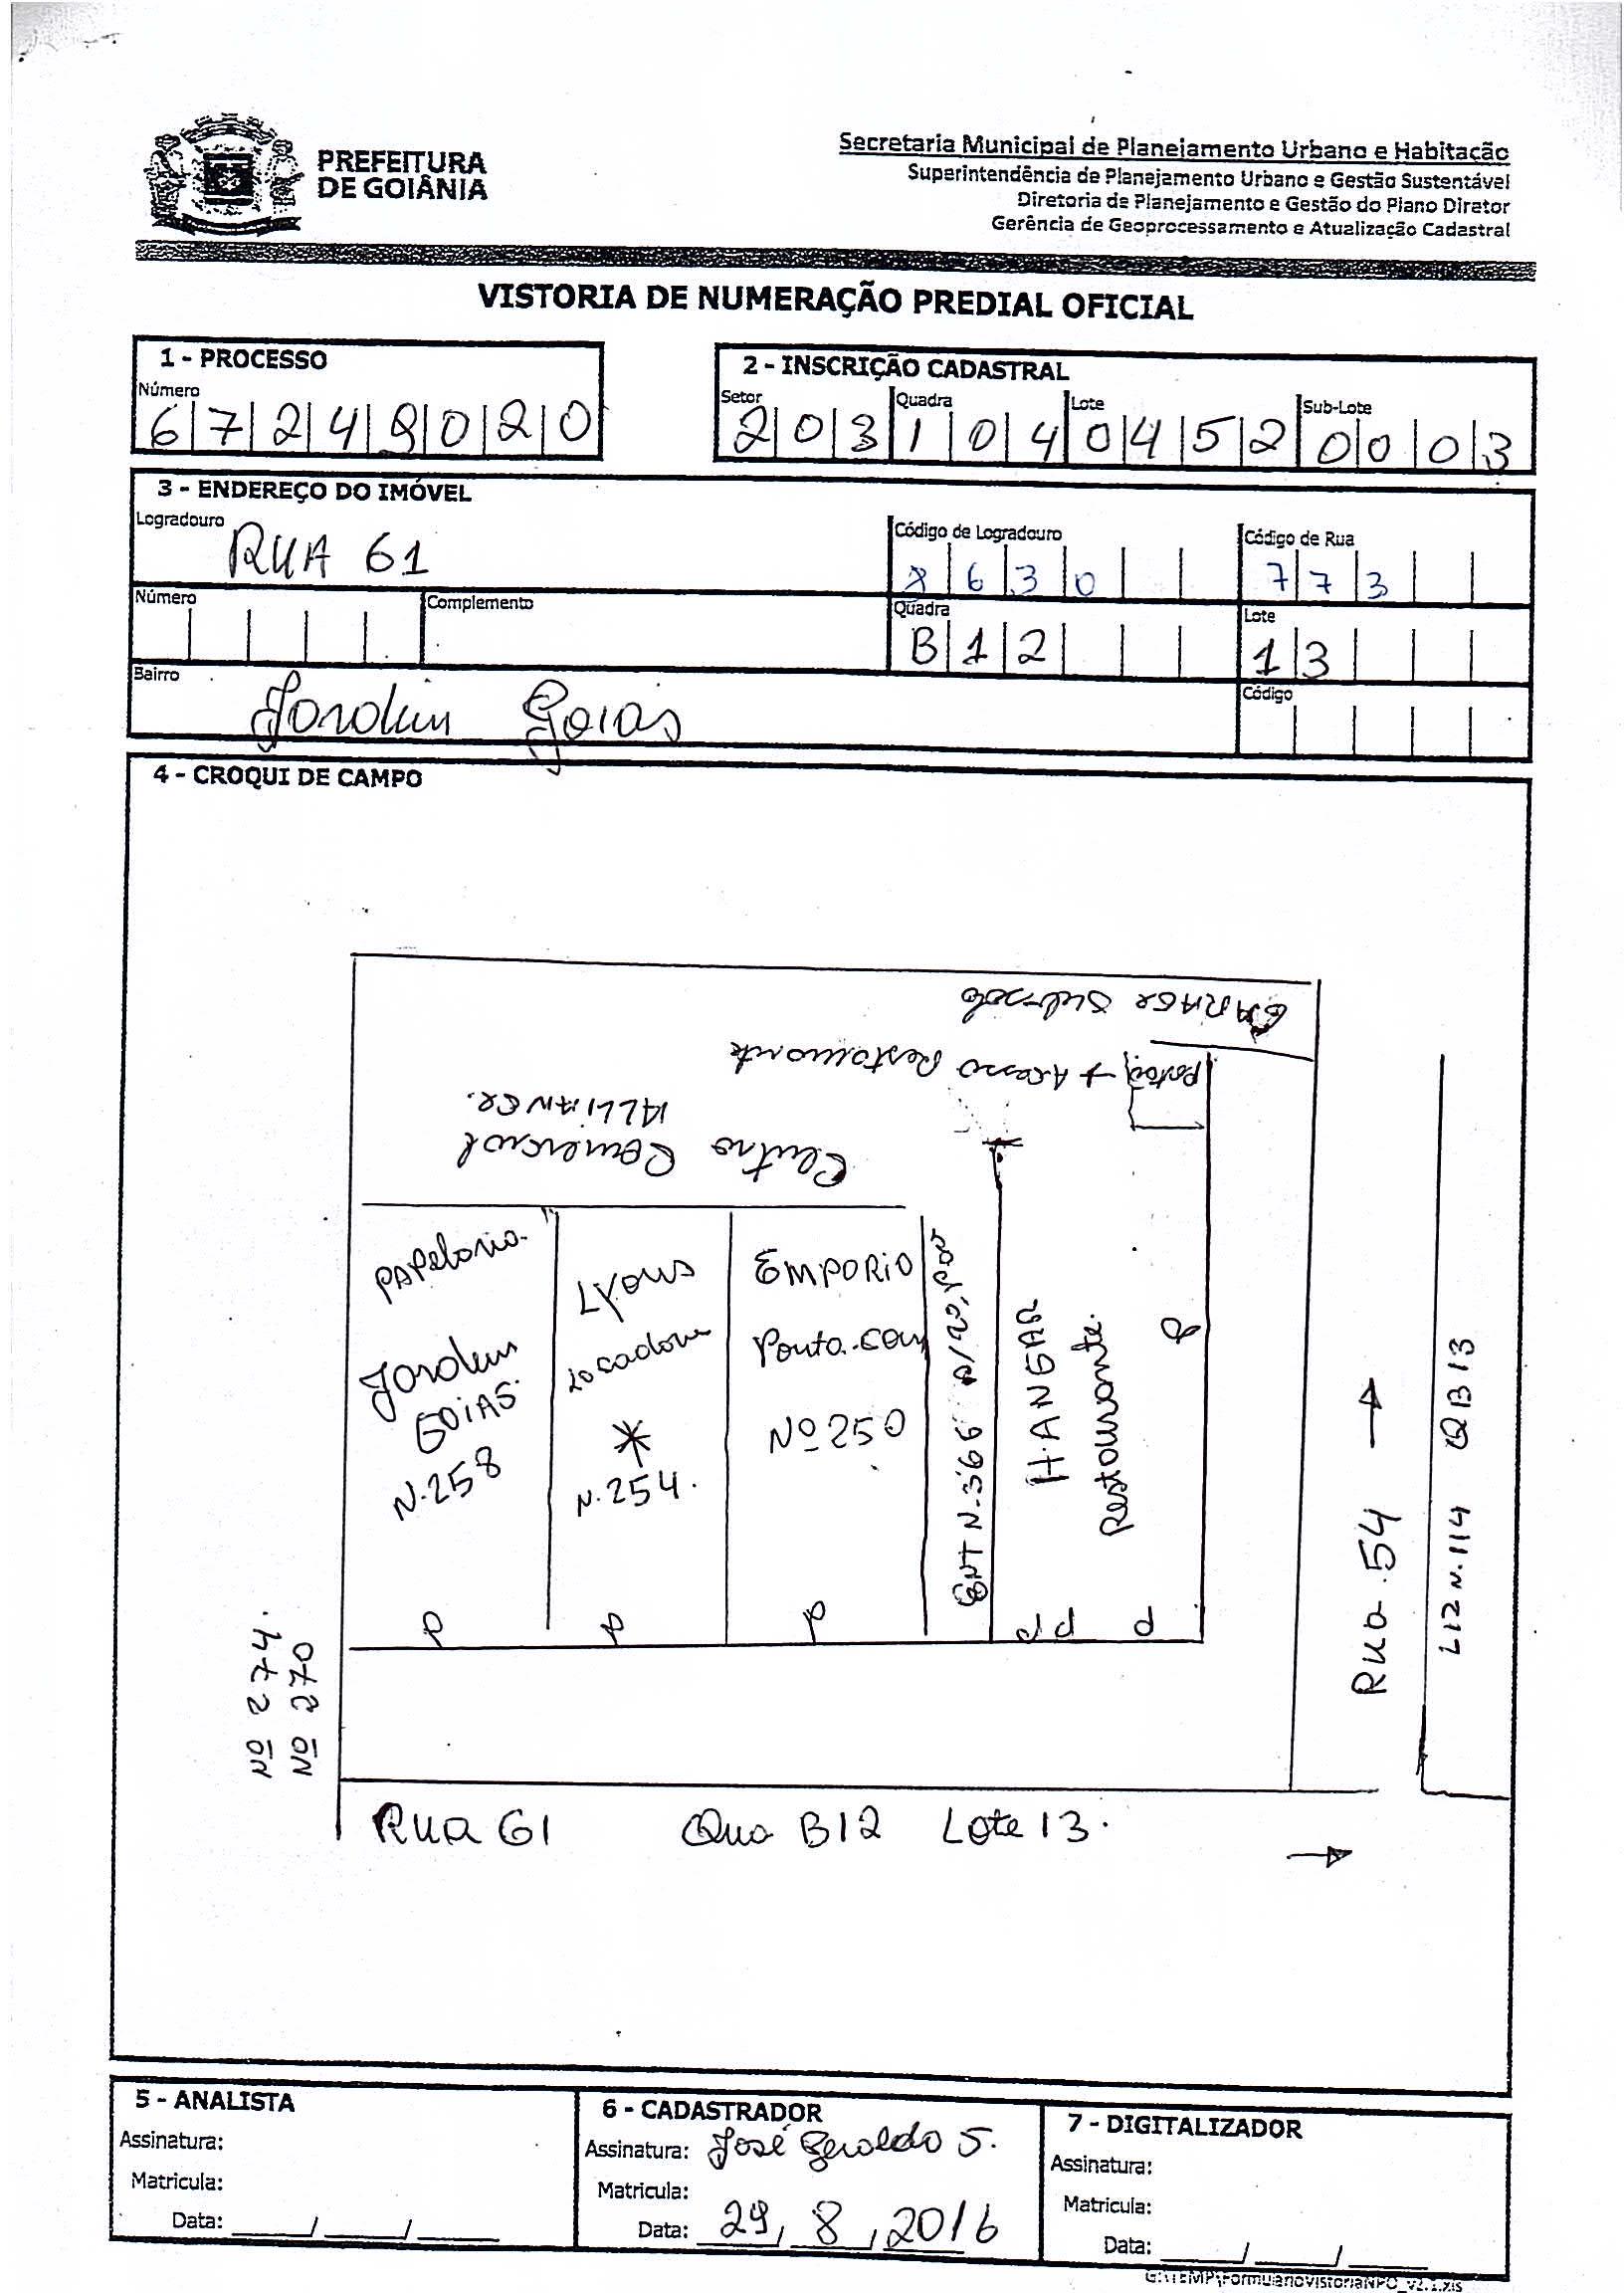 PREFEITURA
DE GOIÂNIA
Secretaria Municipal de Planejamento Urbano e Habitação
Superintendência de Planejamento Urbano e Gestão Sustentável
Diretoria de Planejamento e Gestão do Plano Diretor
Gerência de Geoprocessamento e Atualização Cadastral
VISTORIA DE NUMERAÇÃO PREDIAL OFICIAL
1 - PROCESSO
Número
6 7 2 4 9 0 2 0
2 - INSCRIÇÃO CADASTRAL
Setor Quadra Lote Sub-Lote
2 0 3 1 0 4 0 4 5 2 0 0 0 3
3 - ENDEREÇO DO IMÓVEL
Logradouro
RUA 61
Código de Logradouro
8 6 3 0
Código de Rua
7 7 3
Número
Complemento
Quadra
B 1 2
Lote
1 3
Bairro
Jardim Goiás
Código
4 - CROQUI DE CAMPO
GARAGE Subsolo
Portão → Acesso Restaurante
Centro Comercial
ALLIANCE.
Papelaria
Jardim
GOIAS
N.258
Lyous
Locadora
*
N.254.
EMPORIO
Ponto.com
Nº 250
ENT N.366
HANGAR
Restaurante.
P
P
P
P
d d d
Rua 54 →
L12 N.114 QB13
Nº 274.
Nº 270
Rua 61 Qua B12 Lote 13.
→
5 - ANALISTA
Assinatura:
Matricula:
Data: ____/____/____
6 - CADASTRADOR
Assinatura: José Geraldo S.
Matricula:
Data: 29/8/2016
7 - DIGITALIZADOR
Assinatura:
Matricula:
Data: ____/____/____
G:\TEMP\FormularioVistoriaNPO_v2.1.xls